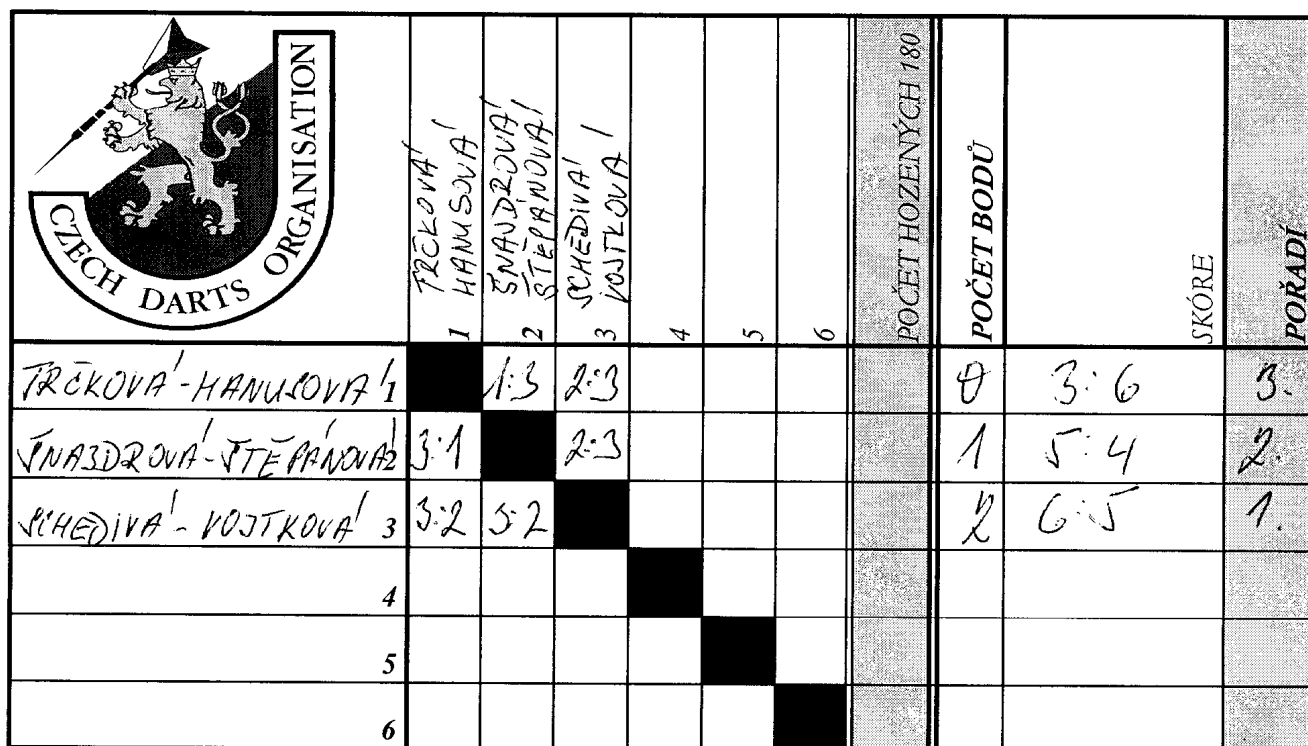 CZECH DARTS ORGANISATION
TRČKOVÁ HANUSOVÁ 1
ŠNAJDROVÁ ŠTĚPÁNOVÁ 2
SCHEDIVÁ VOJTKOVÁ 3
4
5
6
POČET HOZENÝCH 180
POČET BODŮ
SKÓRE
POŘADÍ
TRČKOVÁ-HANUSOVÁ 1 1:3 2:3 0 3:6 3.
ŠNAJDROVÁ-ŠTĚPÁNOVÁ 2 3:1 2:3 1 5:4 2.
SCHEDIVÁ-VOJTKOVÁ 3 3:2 3:2 2 6:5 1.
4
5
6